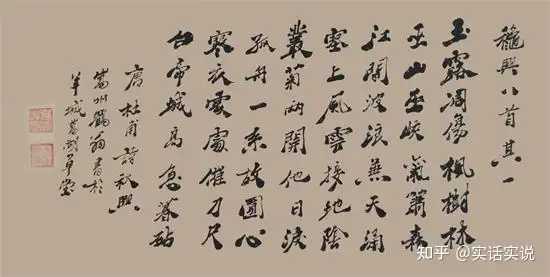 穐興八首其一
玉露凋傷楓樹林
巫山巫峽氣蕭森
江間波浪兼天涌
塞上風雲接地陰
叢菊兩開他日淚
孤舟一系故園心
寒衣處處催刀尺
白帝城高急暮砧
唐杜甫詩秋興
州翁書於
羊城草堂
知乎 @实话实说